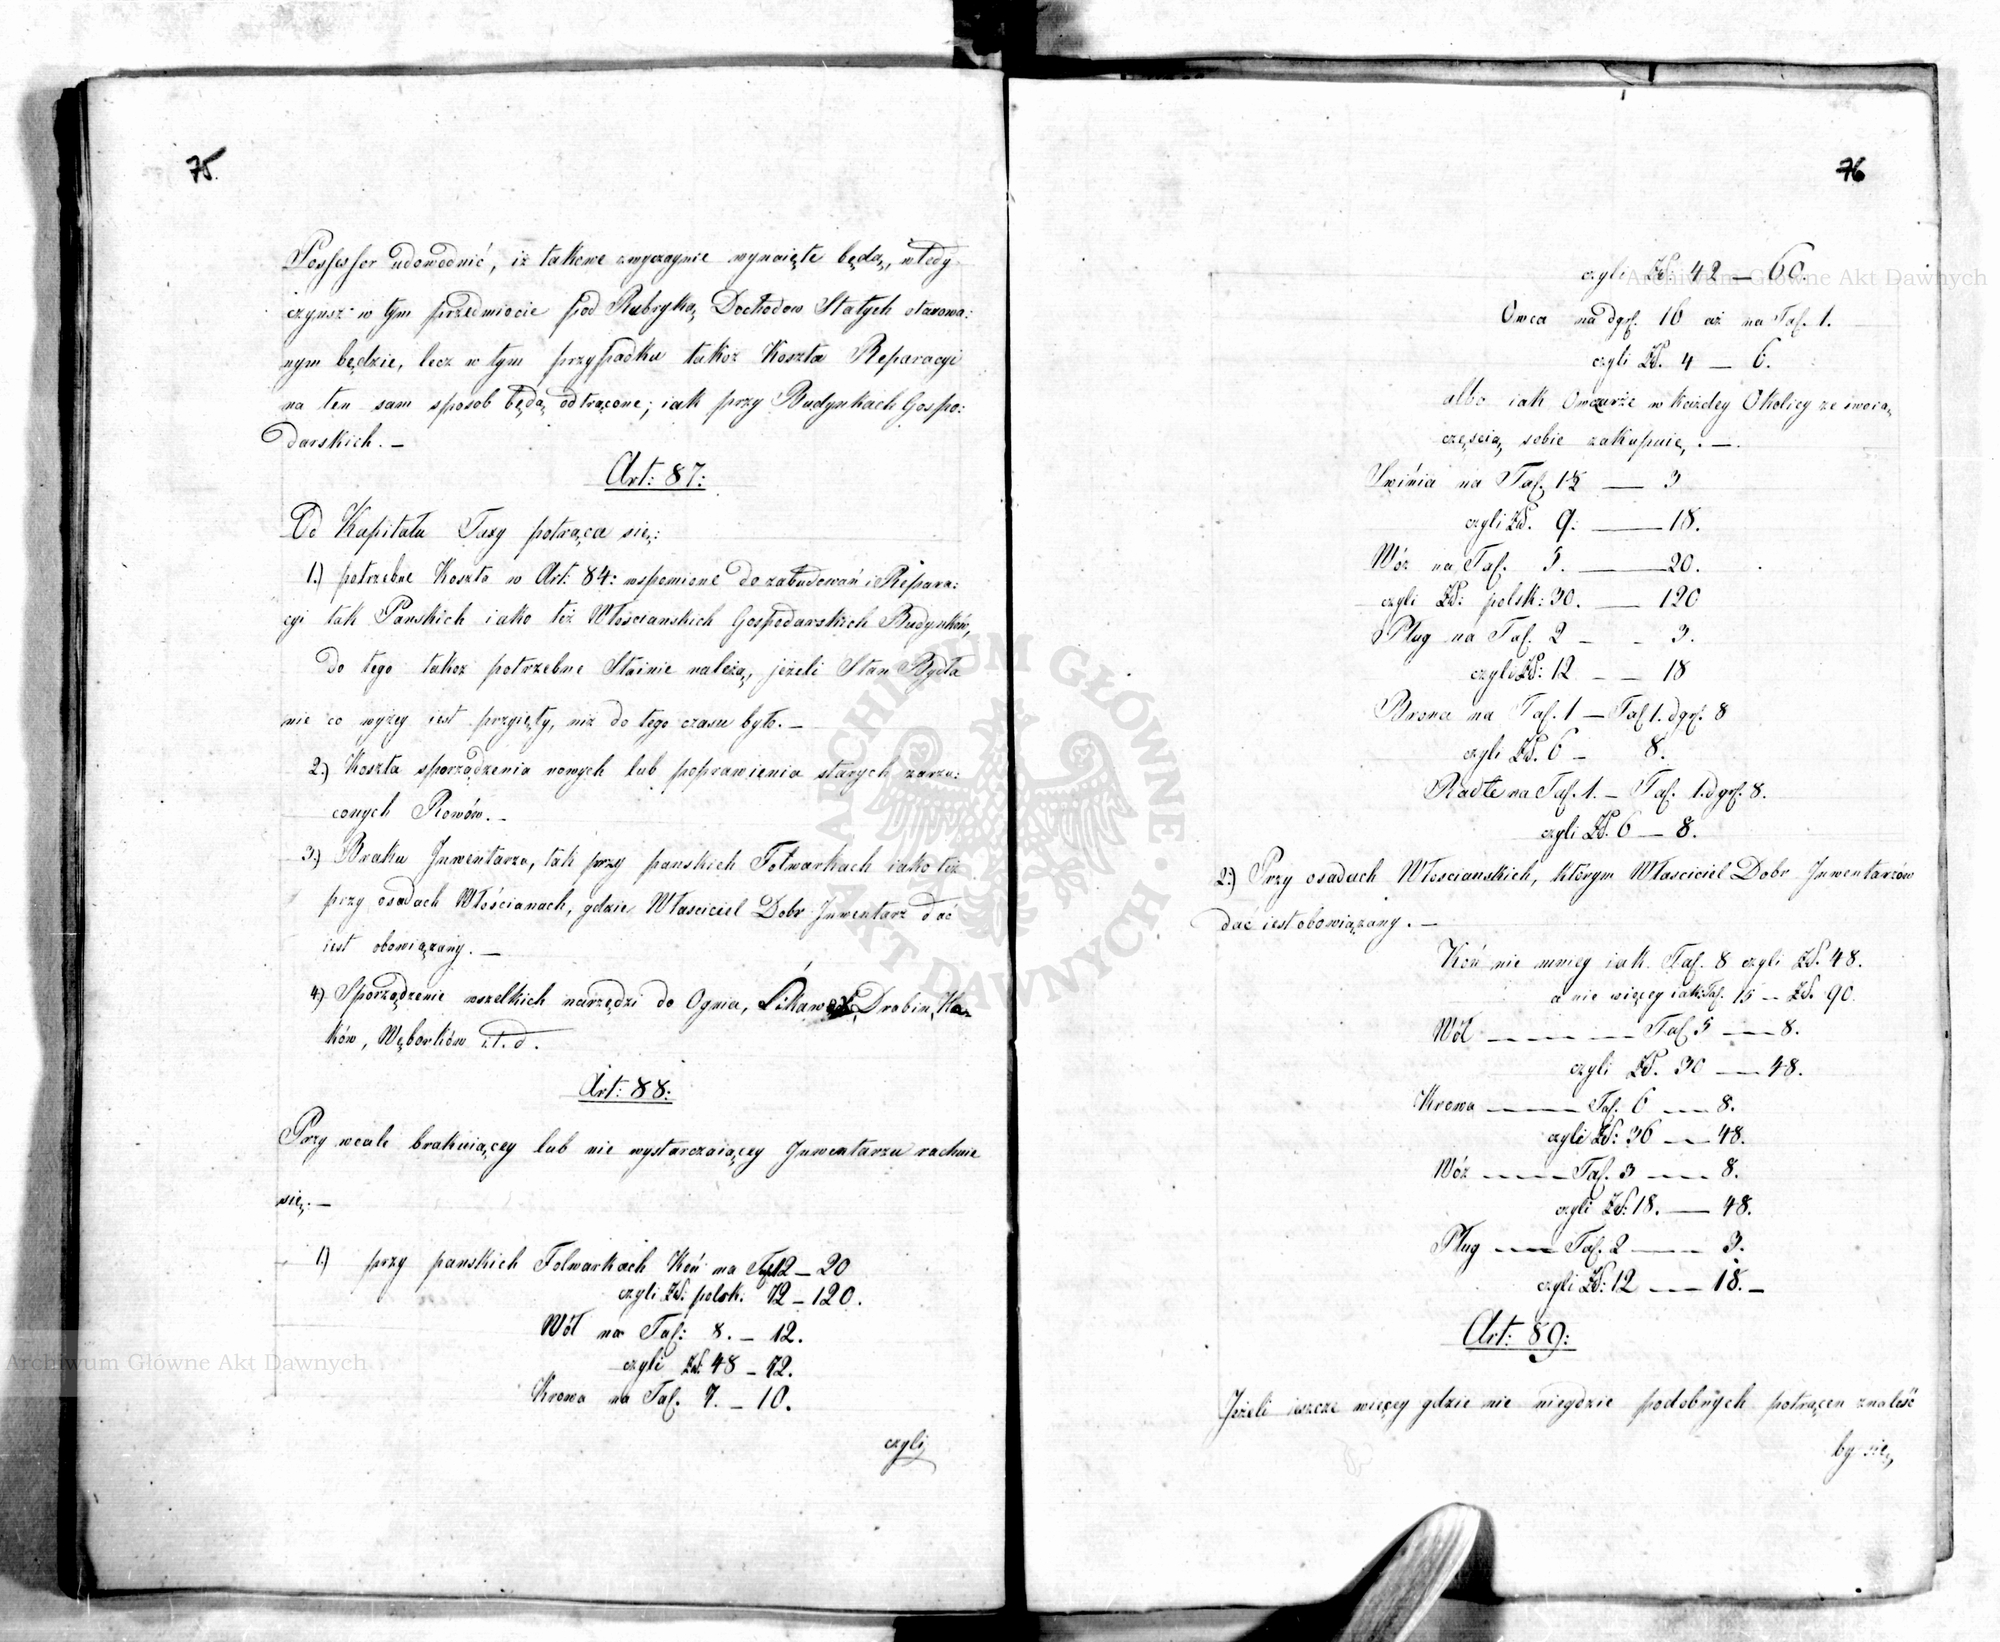 75.
Possessor udowodnić, iż takowe zwyczaynie wynaięte będą, wtedy
czynsz w tym przedmiocie pod Rubryką Dochodow Stałych starowa:
nym będzie, lecz w tym przypadku takoż Koszta Reparacyi
na ten sam sposob będą odtrącone; iak przy Budynkach Gospo:
darskich. —
Art: 87:
Od Kapitału Taxy potrąca się:
1.) potrzebne Koszta w Art: 84: wspomione do zabudowań i Repara:
cyi tak Panskich iako też Włościanskich Gospodarskich Budynków,
do tego takoż potrzebne Stainie należą, jeżeli Stan Bydła
nie co wyżey iest przyięty, niż do tego czasu był. —
2.) Koszta sporządzenia nowych lub poprawienia starych zarzu:
conych Rowów. —
3.) Braku Inwentarza, tak przy panskich Folwarkach iako też
przy osadach Włościanach, gdzie Właściciel Dobr Inwentarz dać
iest obowiązany. —
4.) Sporządzenie wszelkich narzędzi do Ognia, Drabin, Ha-
ków, Węborków i.t.d.
Art: 88:
Przy wcale brakuiącey lub nie wystarczaiącey Inwentarzu rachuie
się: —
1.) przy panskich Folwarkach Koń na Tal. 12 — 20
czyli Zł. polsk. 72 — 120.
Wół na Tal: 8. — 12.
czyli Zł. 48 — 72.
Krowa na Tal. 7. — 10.
czyli
76
czyli Zł. 42 — 60.
Owca na dgr. 16 aż na Tal. 1.
czyli Zł. 4 — 6.
albo iak Owczarze w każdey Okolicy ze swoią
częścią sobie zakupuią. —
Swinia na Tal. 1½ — 3
czyli Zł. 9. — 18.
Wóz na Tal. 5. — 20.
czyli Zł: polsk: 30. — 120
Pług na Tal. 2 — 3.
czyli Zł: 12 — 18
Brona na Tal. 1 — Tal 1. dgr. 8
czyli Zł. 6 — 8.
Radło na Tal. 1. — Tal. 1. dgr. 8.
czyli Zł. 6 — 8.
2.) Przy osadach Włoscianskich, którym Własciciel Dobr Inwentarzów
dać iest obowiązany. —
Koń nie mniey iak Tal. 8 czyli Zł. 48.
a nie więcey iak Tal. 15 — Zł. 90.
Wół — Tal. 5 — 8.
czyli Zł. 30 — 48.
Krowa — Tal. 6 — 8.
czyli Zł: 36 — 48.
Wóz — Tal. 3 — 8.
czyli Zł: 18. — 48.
Pług — Tal. 2 — 3.
czyli Zł: 12 — 18. —
Art: 89:
Jeżeli ieszcze więcey gdzie nie niegdzie podobnych potrąceń znaleść
by się,
Archiwum Główne Akt Dawnych
Archiwum Główne Akt Dawnych
ARCHIWUM GŁÓWNE AKT DAWNYCH